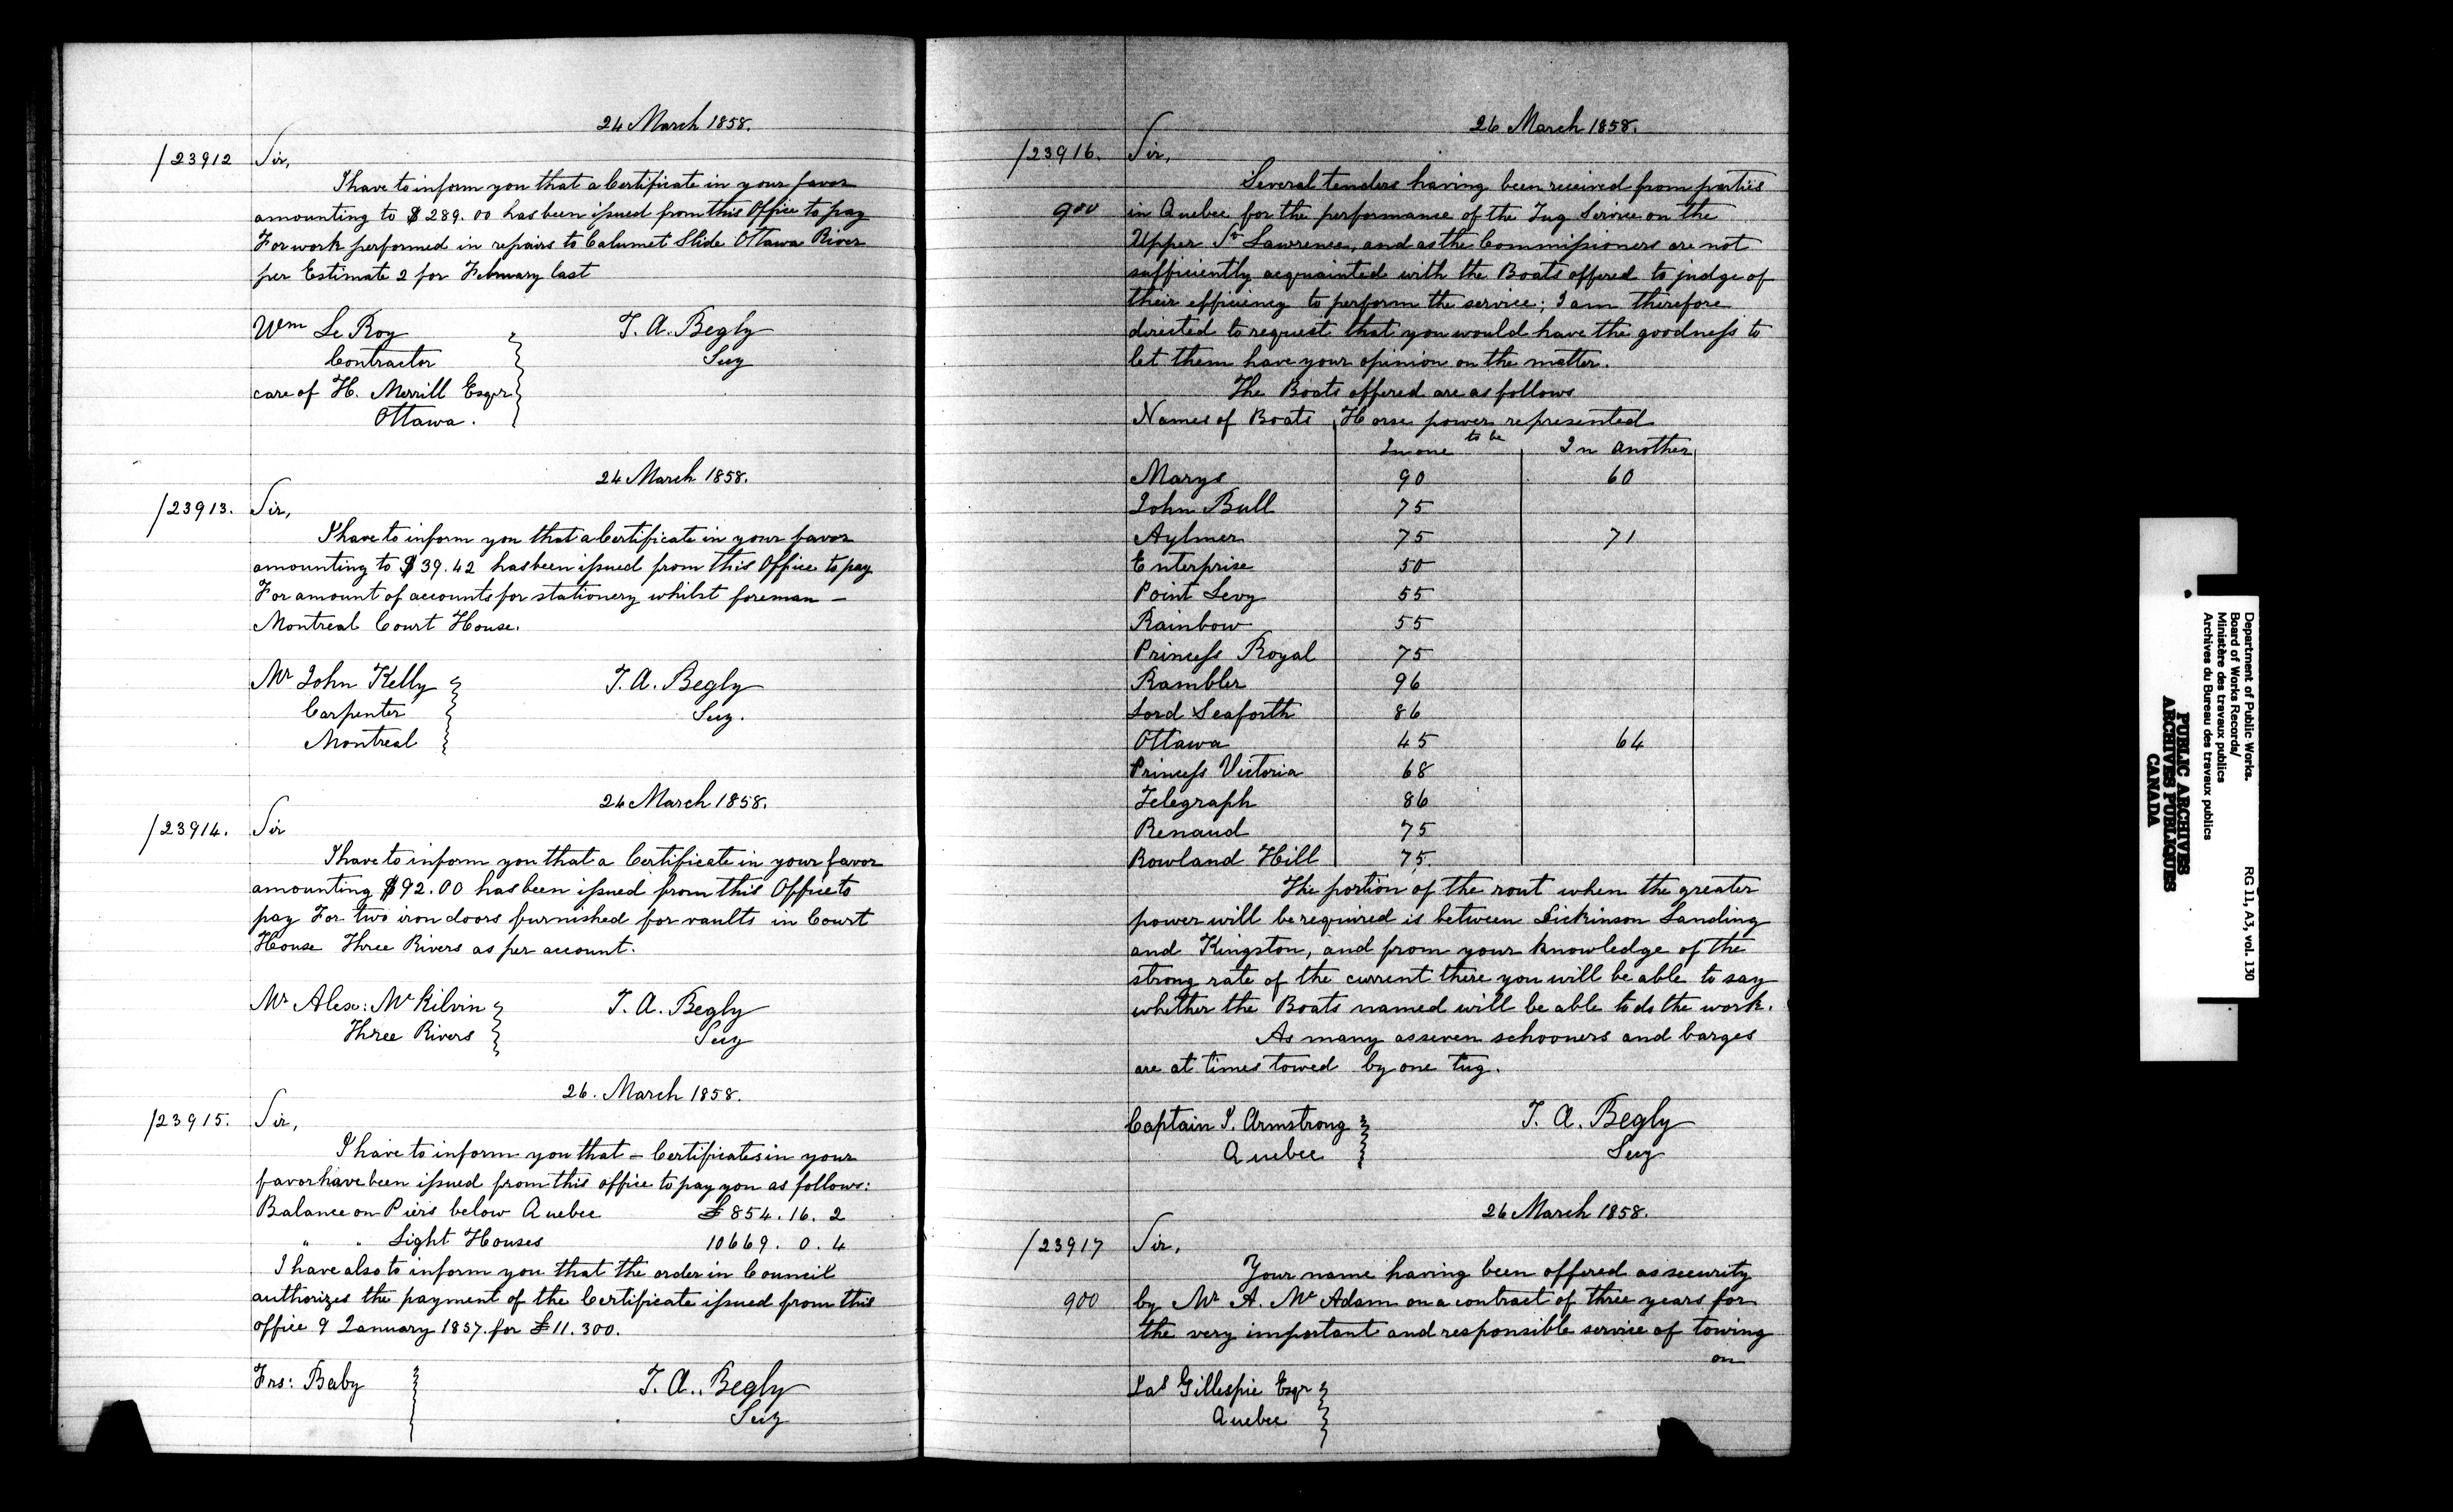 24 March 1858.
/23912 Sir,
I have to inform you that a Certificate in your favor
amounting to $289.00 has been issued from this Office to pay
For work performed in repairs to Calumet Slide Ottawa River
per Estimate 2 for February last
Wm Le Roy
Contractor
care of H. Merrill Esqr
Ottawa.
T. A. Begly
Secy
24 March 1858.
/23913. Sir,
I have to inform you that a Certificate in your favor
amounting to $39.42 has been issued from this Office to pay
For amount of accounts for stationery whilst foreman –
Montreal Court House.
Mr John Kelly
Carpenter
Montreal
T. A. Begly
Secy.
24 March 1858.
/23914. Sir
I have to inform you that a Certificate in your favor
amounting $92.00 has been issued from this Office to
pay For two iron doors furnished for vaults in Court
House Three Rivers as per account.
Mr Alex: Mc Kilvin
Three Rivers
T. A. Begly
Secy
26. March 1858.
/23915. Sir,
I have to inform you that – Certificates in your
favor have been issued from this office to pay you as follows:
Balance on Piers below Quebec £854.16.2
" " Light Houses 10669.0.4
I have also to inform you that the order in Council
authorizes the payment of the Certificate issued from this
office 9 January 1857. for £11.300.
Frs: Baby
T. A. Begly
Secy
26 March 1858.
/23916. Sir,
Several tenders having been received from parties
900 in Quebec for the performance of the Tug Service on the
Upper St Lawrence, and as the Commissioners are not
sufficiently acquainted with the Boats offered to judge of
their efficiency to perform the service; I am therefore
directed to request that you would have the goodness to
let them have your opinion on the matter.
The Boats offered are as follows
Names of Boats Horse power represented
to be
In one In another
Marys 90 60
John Bull 75
Aylmer 75 71
Enterprise 50
Point Levy 55
Rainbow 55
Princess Royal 75
Rambler 96
Lord Seaforth 86
Ottawa 45 64
Princess Victoria 68
Telegraph 86
Renaud 75
Rowland Hill 75.
The portion of the rout when the greater
power will be required is between Dickinson Landing
and Kingston, and from your knowledge of the
strong rate of the current there you will be able to say
whether the Boats named will be able to do the work.
As many as seven schooners and barges
are at times towed by one tug.
Captain J. Armstrong
Quebec
T. A. Begly
Secy
26 March 1858.
/23917 Sir,
Your name having been offered as security
900 by Mr A. Mc Adam on a contract of three years for
the very important and responsible service of towing
on
Jas Gillespie Esqr
Quebec
Department of Public Works.
Board of Works Records/
Ministère des travaux publics
Archives du Bureau des travaux publics
RG 11, A3, vol. 130
PUBLIC ARCHIVES
ARCHIVES PUBLIQUES
CANADA